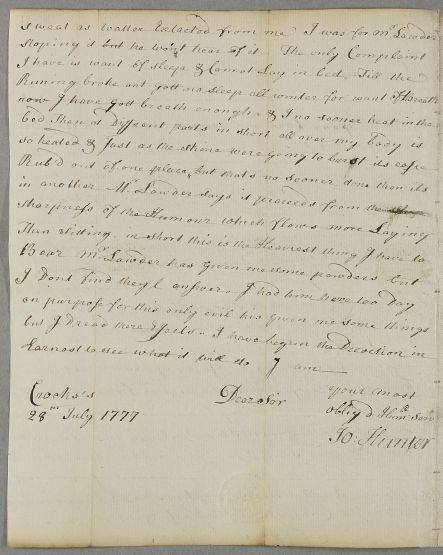 I sweat as watter Extacted from me I was for Mr Lawder
stoping it but he won't hear of it The only Complaint
I have is want of sleep & Cannot Lay in bed. Till the
Runing broke out gott no sleep all winter for want of Breath
now I have gott breath enough, & I no sooner heat in the
bed then at Different parts in short all over my body is
so heated & Just as the skine were going to burst its case
Rub'd out of one place, but thats no sooner done then its
in another Mr Lawder says it proceeds from the
sharpness of the Humour which flows more Laying
Then sitting, in short this is the Heavest thing I have to
Bear Mr Lawder has given me some powders but
I Dont find they'l answer. I had him here too Day
on purpose for this only evil his given me some things
but I Dread there Effects. I have begun the Decoction in
Earnest to see what it will do I am
Dear Sir
your most
oblig'd Hum: Serv
Jo: Hunter
Crooks's
28th July 1777